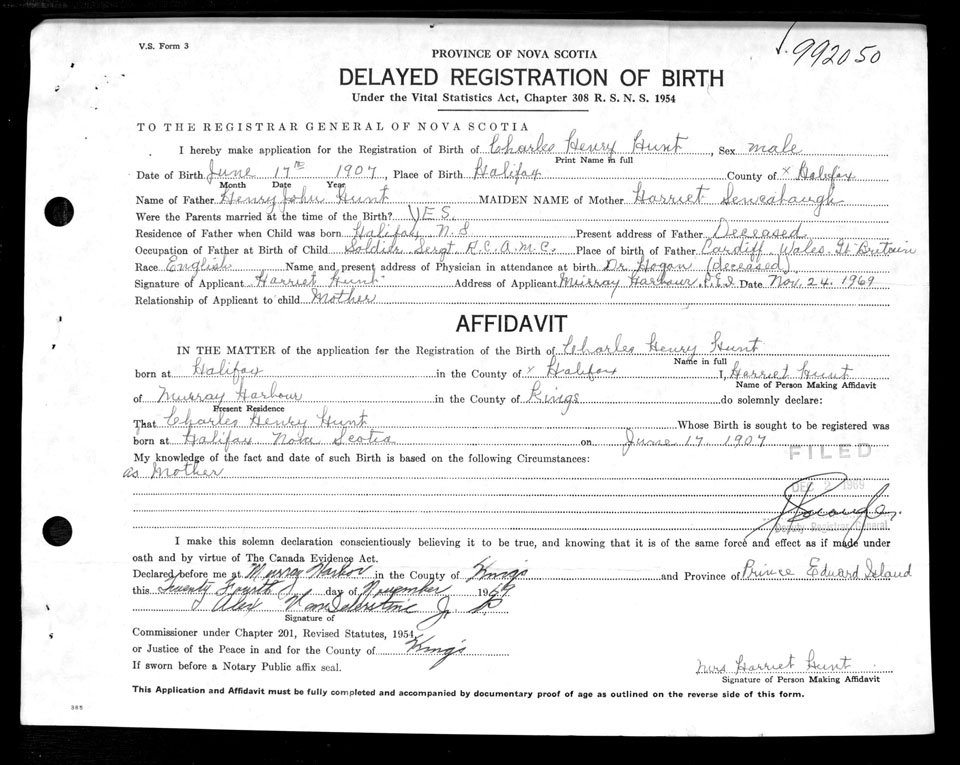 V.S. Form 3
992050
PROVINCE OF NOVA SCOTIA
DELAYED REGISTRATION OF BIRTH
Under the Vital Statistics Act, Chapter 308 R. S. N. S. 1954
TO THE REGISTRAR GENERAL OF NOVA SCOTIA
I hereby make application for the Registration of Birth of Charles Henry Hunt, Sex male
Print Name in full
Date of Birth June 17th 1907, Place of Birth Halifax County of x Halifax
Month Date Year
Name of Father Henry John Hunt MAIDEN NAME of Mother Harriet
Were the Parents married at the time of the Birth? YES.
Residence of Father when Child was born Halifax N.S Present address of Father Deceased
Occupation of Father at Birth of Child Soldier Sergt R.C.A.M.C. Place of birth of Father Cardiff Wales Gt Britain
Race English Name and present address of Physician in attendance at birth Dr Hogan (deceased)
Signature of Applicant Harriet Hunt Address of Applicant Murray Harbour, P.E.I Date Nov. 24. 1969
Relationship of Applicant to child Mother
AFFIDAVIT
IN THE MATTER of the application for the Registration of the Birth of Charles Henry Hunt
Name in full
born at Halifax in the County of x Halifax I, Harriet Hunt
Name of Person Making Affidavit
of Murray Harbour in the County of Kings do solemnly declare:
Present Residence
That Charles Henry Hunt Whose Birth is sought to be registered was
born at Halifax Nova Scotia on June 17 1907
FILED
My knowledge of the fact and date of such Birth is based on the following Circumstances:
as Mother
DEC 2 1969
Deputy Registrar General
I make this solemn declaration conscientiously believing it to be true, and knowing that it is of the same force and effect as if made under
oath and by virtue of The Canada Evidence Act.
Declared before me at Murray Harbor in the County of Kings and Province of Prince Edward Island
this Twenty Fourth day of November 1969
Alex J P
Signature of
Commissioner under Chapter 201, Revised Statutes, 1954,
or Justice of the Peace in and for the County of King's
If sworn before a Notary Public affix seal.
Mrs Harriet Hunt
Signature of Person Making Affidavit
This Application and Affidavit must be fully completed and accompanied by documentary proof of age as outlined on the reverse side of this form.